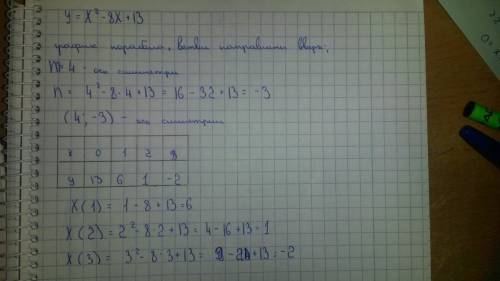 y = x² - 8x + 13
график парабола, ветви направлены вверх;
m = 4 - ось симметри
n = 4² - 8·4 + 13 = 16 - 32 + 13 = -3
(4; -3) - ось симметрии
x 0 1 2 3
y 13 6 1 -2
X(1) = 1 - 8 + 13 = 6
X(2) = 2² - 8·2 + 13 = 4 - 16 + 13 = 1
X(3) = 3² - 8·3 + 13 = 9 - 24 + 13 = -2